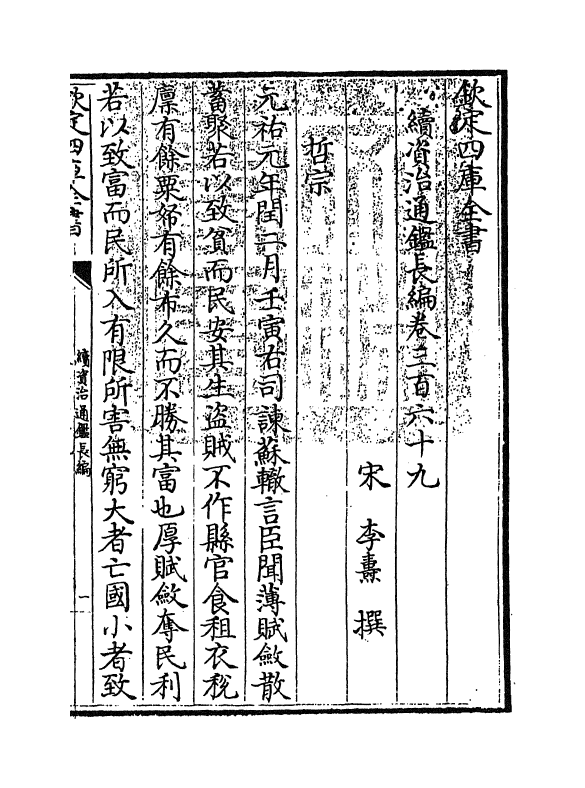 欽定四庫全書
續資治通鑑長編卷三百六十九
宋 李燾 撰
哲宗
元祐元年閏二月壬寅右司諫蘇轍言臣聞薄賦斂散
蓄聚若以致貧而民安其生盜賊不作縣官食租衣稅
廪有餘粟帑有餘布久而不勝其富也厚賦斂奪民利
若以致富而民所入有限所害無窮大者亡國小者致
欽定四庫全書
續資治通鑑長編
一